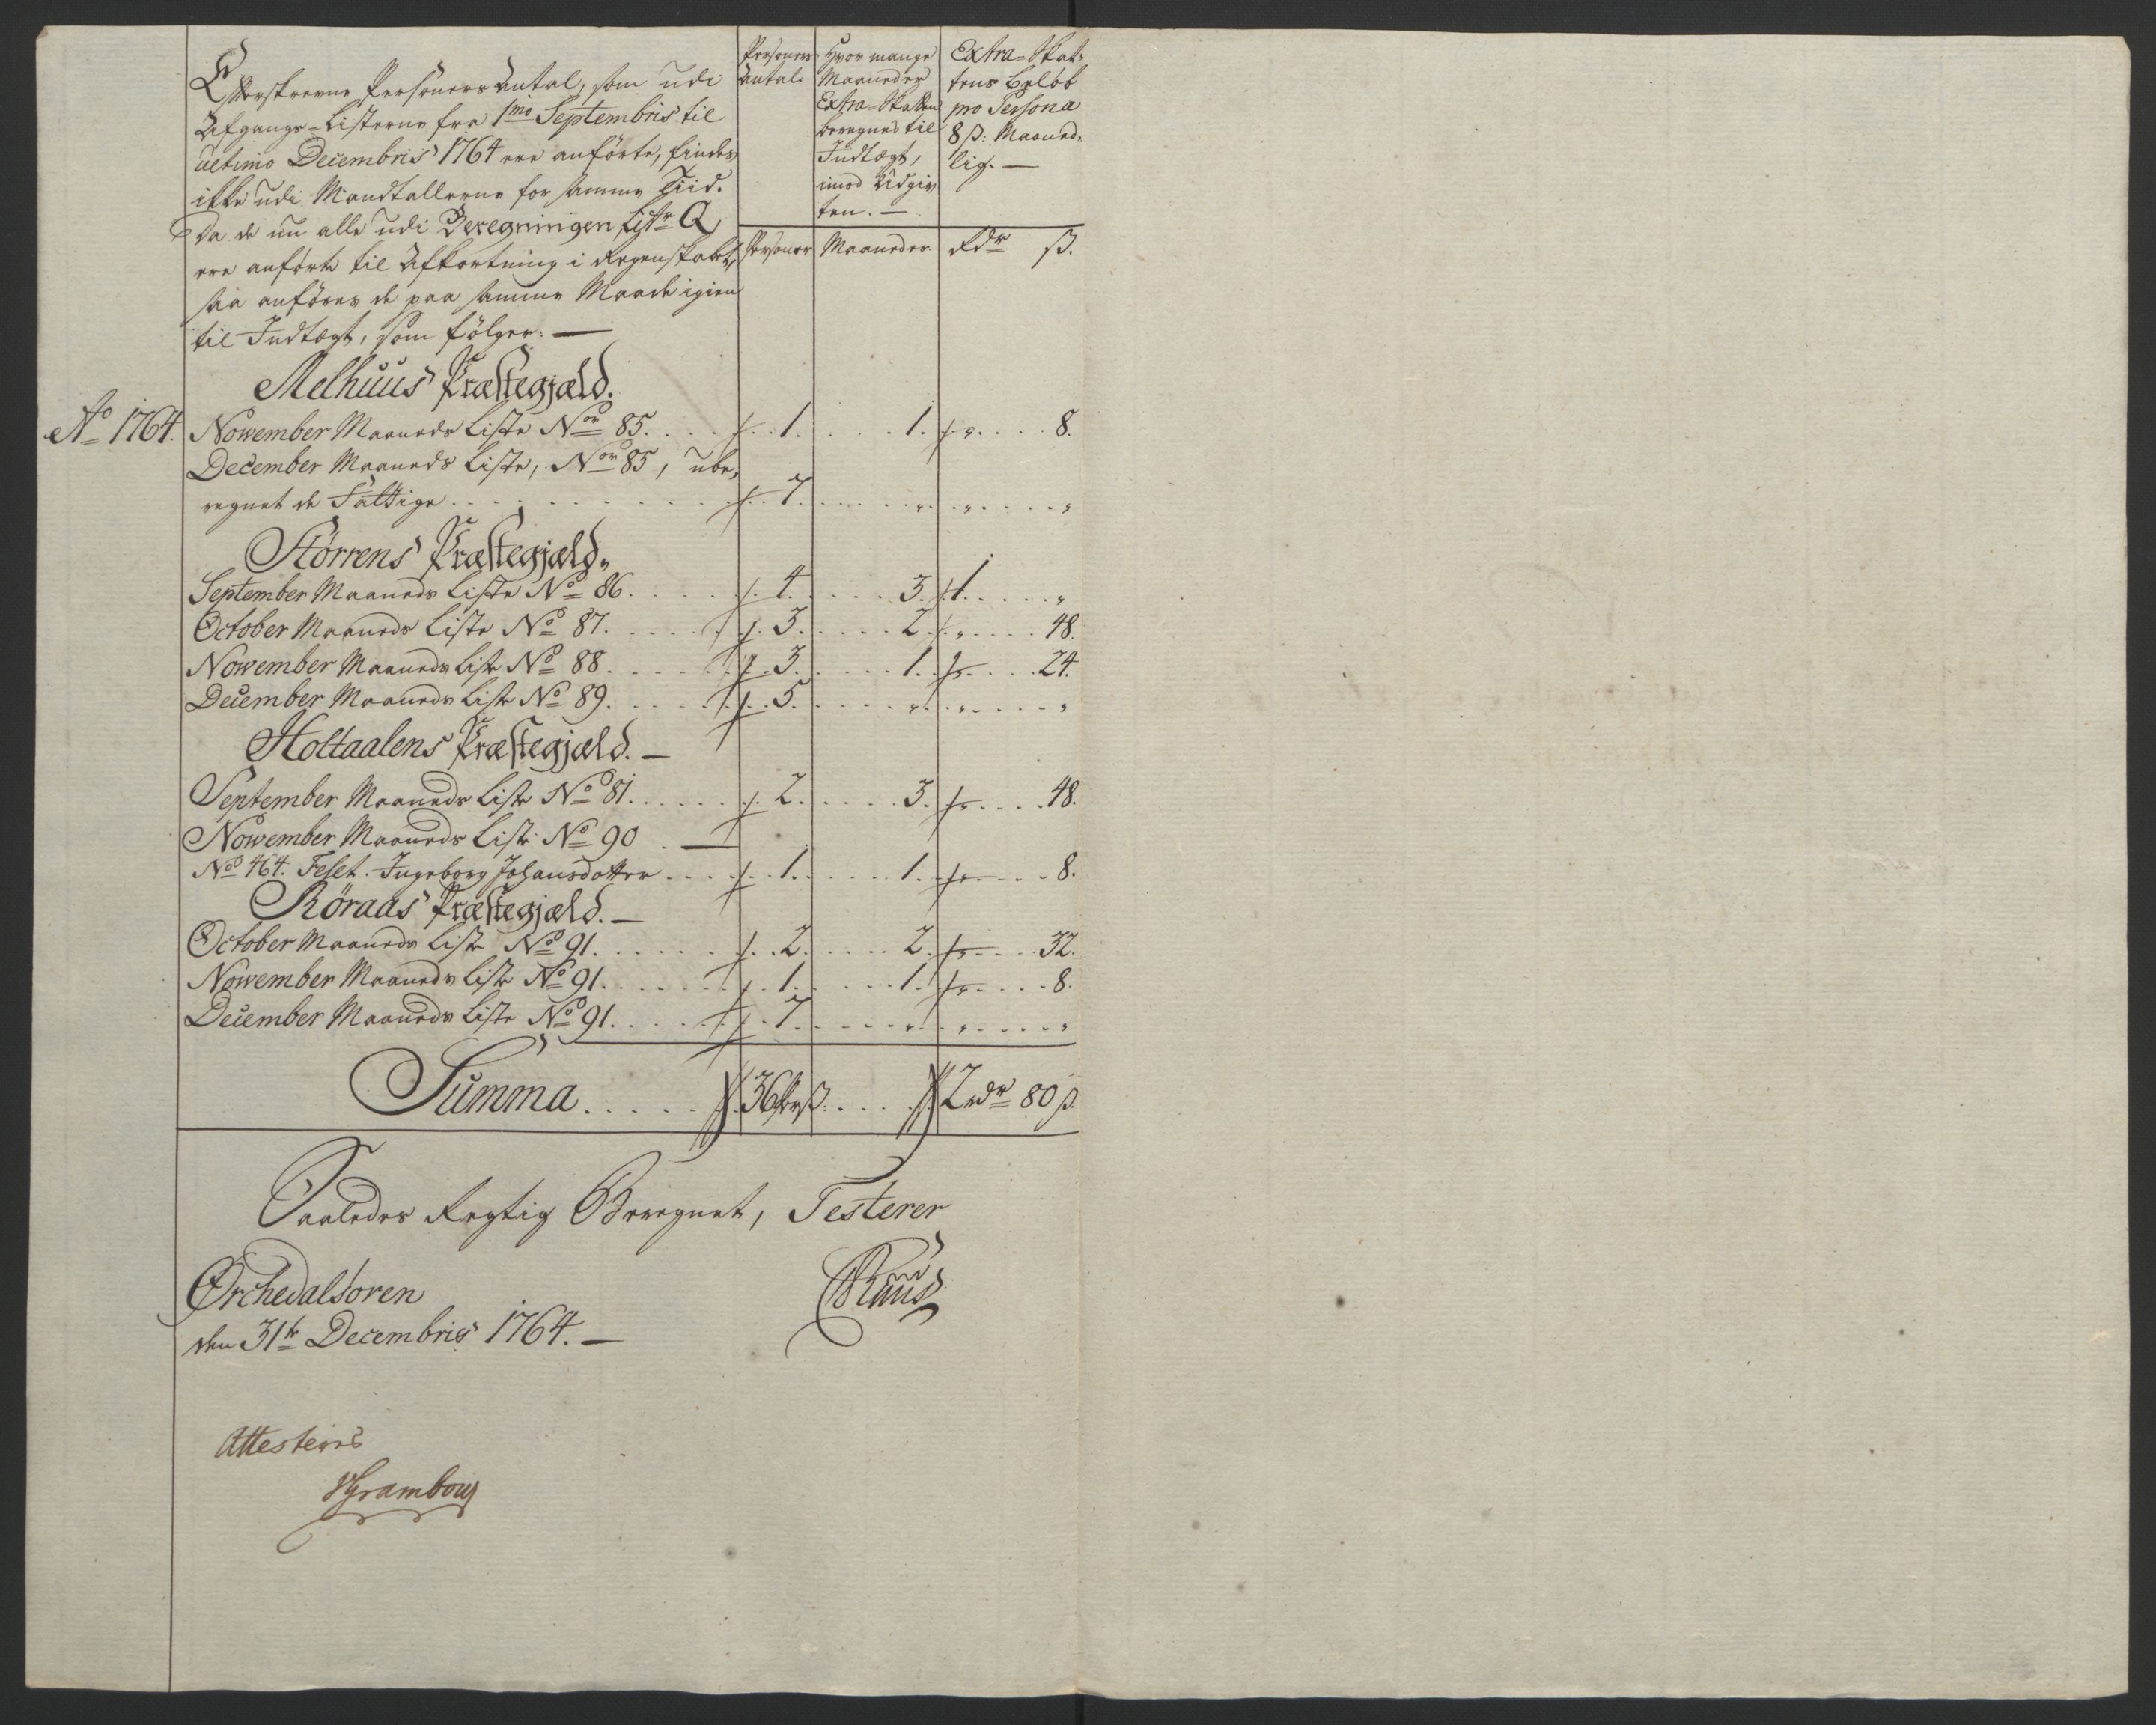 Efterskrevne Personers Antal, som udi
Afgangs-Listerne fra 1mo Septembris til
ultimo Decembris 1764 ere anförte, findes
ikke udi Mandtallerne for samme Tiid.
Da de nu alle udi Beregningen Listr Q
ere anförte til Afkortning i Regenskabet,
saa anföres de paa samme Maade igien
til Indtægt, som fölger. —
Personers Antal.
Hvor mange
Maaneder
Extra-Skatten
beregnes til
Indtægt,
imod Udgiv
ten. —
Extra-Skat-
tens Belöb
pro Persona
8 ß: Maaned-
lig. —
Personer Maaneder Rdr ß.
Melhuus Præstegjæld.
Ao 1764. Nowember Maaneds Liste Nor 85. . . . 1. . . . 1. . . . 8.
December Maaneds Liste, Nor 85, ube-
regnet de Fattige . . . . 7. . . . " . " . . . "
Störrens Præstegjæld.
September Maaneds Liste No 86. . . . 4. . . . 3. 1. . . . "
October Maaneds Liste No 87. . . . 3. . . . 2. " . . . 48.
Nowember Maaneds Liste No 88. . . . 3. . . . 1. " . . . 24.
December Maaneds Liste No 89. . . . 5. . . . " . " . . . "
Holtaalens Præstegjæld. —
September Maaneds Liste No 81. . . . 2. . . . 3. " . . . 48.
Nowember Maaneds Liste No 90 . —
No 464. Feset. Ingeborg Johansdotter . . . 1. . . . 1. " . . . 8.
Röraas Præstegjæld. —
October Maaneds Liste No 91. . . . 2. . . . 2. " . . . 32.
Nowember Maaneds Liste No 91. . . . 1. . . . 1. " . . . 8.
December Maaneds Liste No 91. . . . 7. . . . " . " . . . "
Summa . . . . . 36 Pers. . . . 2 rdr 80 ß.
Saaledes Rigtig Beregnet, Testerer
Ørchedalsoren
den 31te Decembris 1764. —
Attesteres